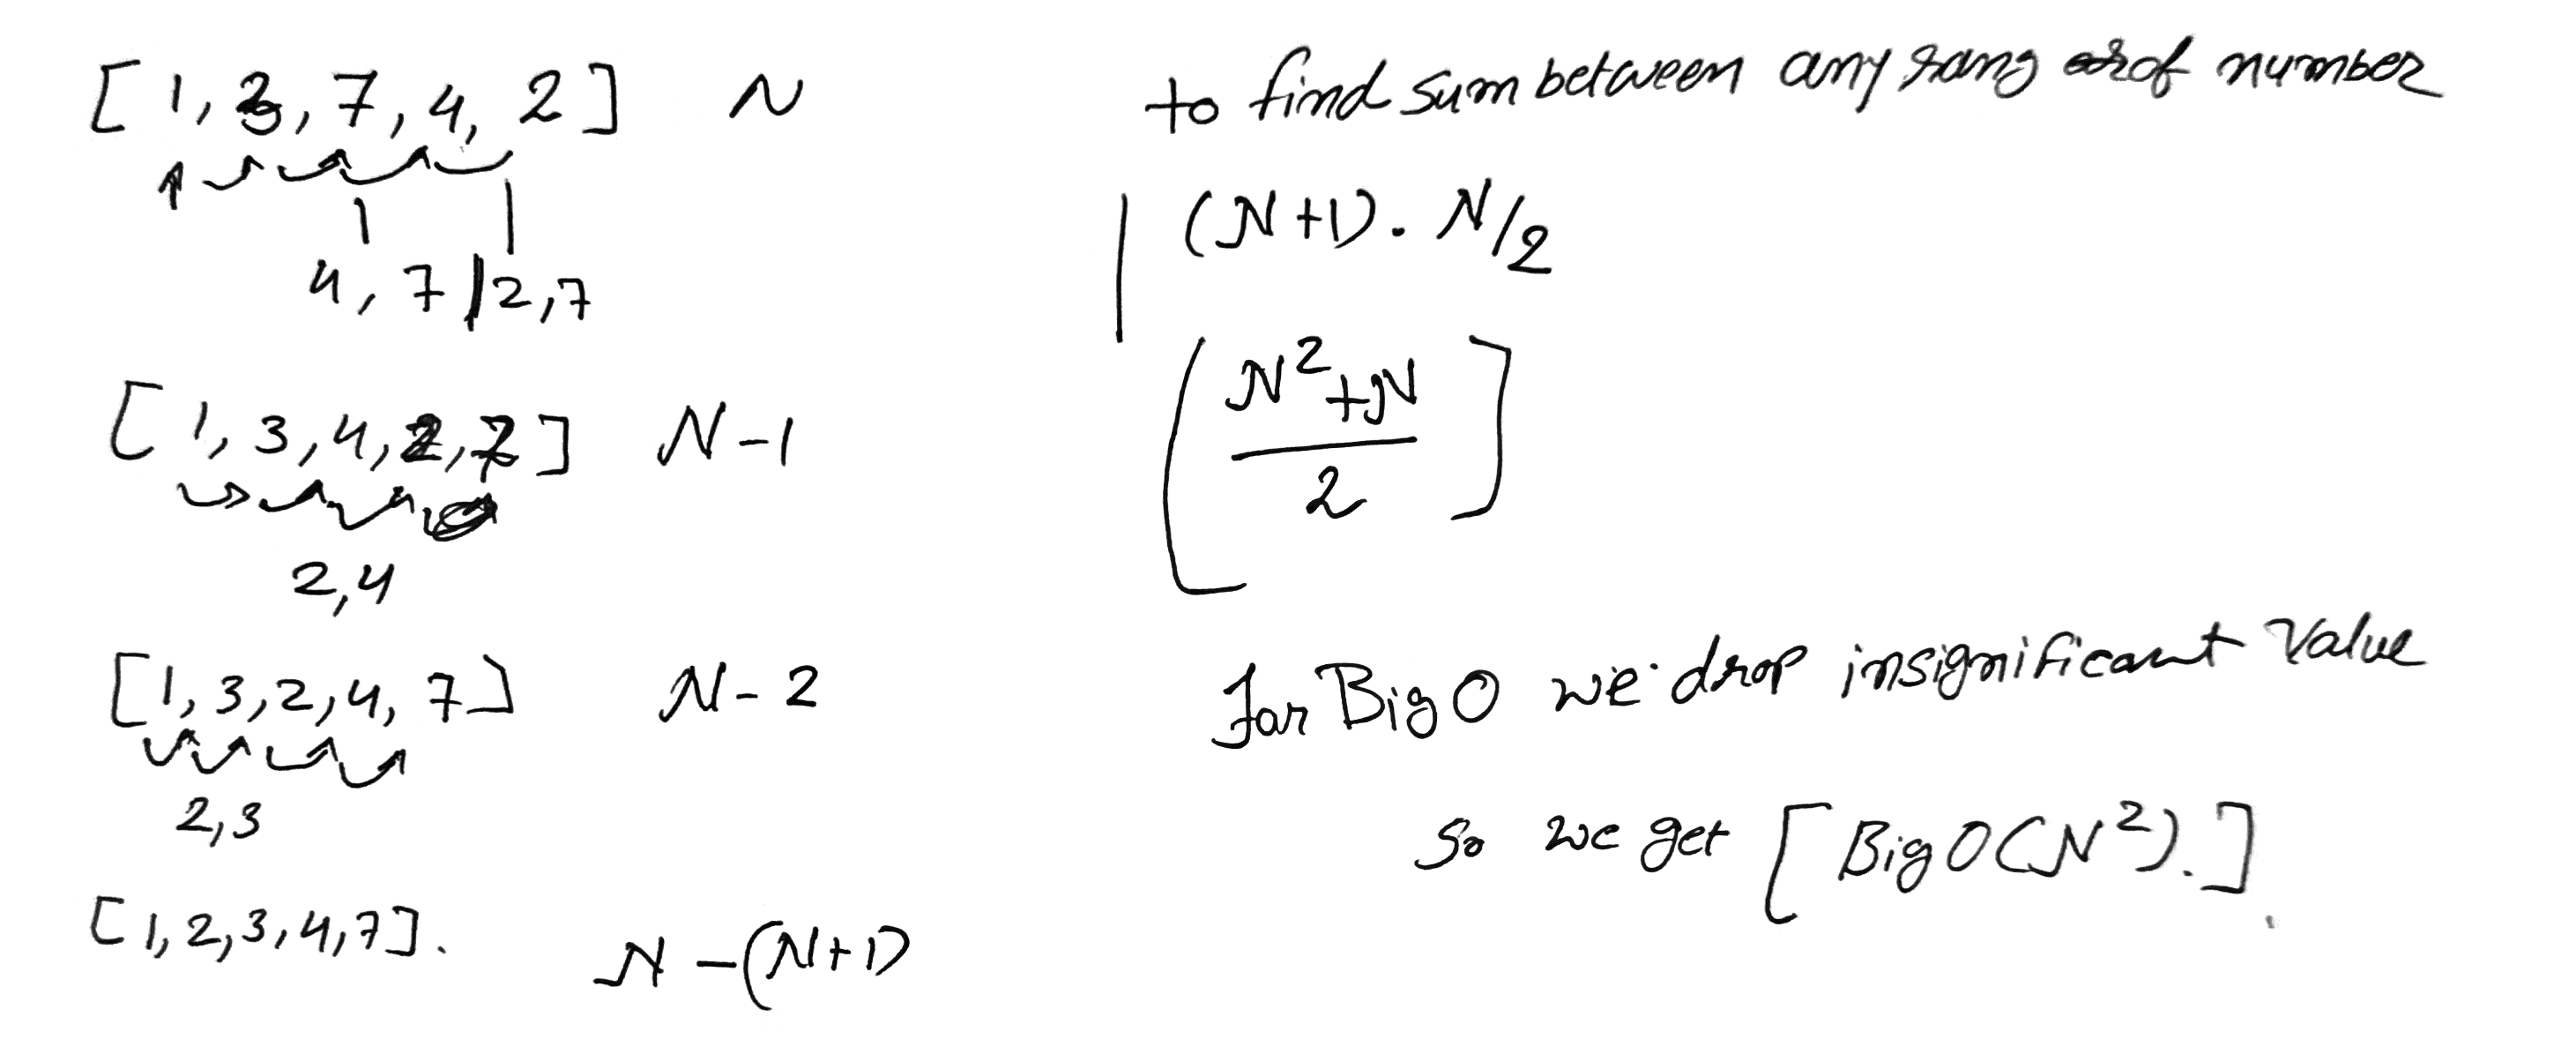 [1, 3, 7, 4, 2] N
4, 7 | 2, 7
[1, 3, 4, 2, 7] N-1
2, 4
[1, 3, 2, 4, 7] N-2
2, 3
[1, 2, 3, 4, 7]. N-(N+1)
to find sum between any rang of number
(N+1). N/2
[N²+N / 2]
for Big O we drop insignificant value
So we get [Big O(N²).]